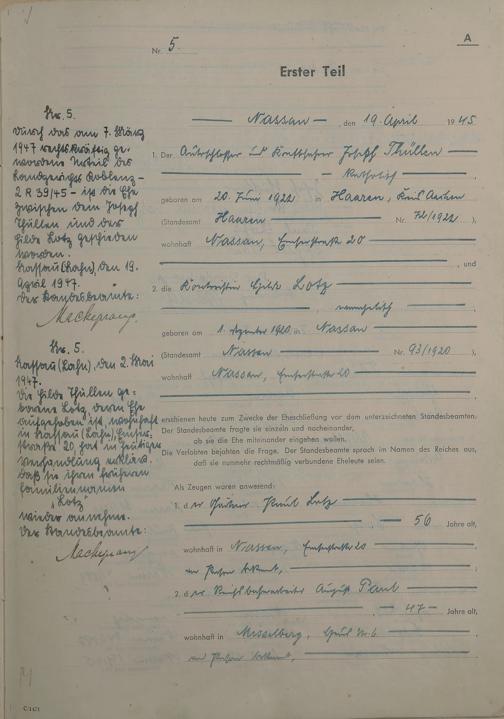 Nr. 5.
A
Erster Teil
Nassau, den 19. April 1945
1. Der Autoschlosser und Kraftfahrer Joseph Thüllen
katholisch
geboren am 20. Juni 1922 in Haaren, Kreis Aachen
(Standesamt Haaren Nr. 72/1922),
wohnhaft Nassau, Emserstraße 20
, und
2. die Kontoristin Hilde Lotz
evangelisch
geboren am 1. 1920 in Nassau
(Standesamt Nassau Nr. 93/1920),
wohnhaft Nassau, Emserstraße 20
erschienen heute zum Zwecke der Eheschließung vor dem unterzeichneten Standesbeamten.
Der Standesbeamte fragte sie einzeln und nacheinander,
ob sie die Ehe miteinander eingehen wollen.
Die Verlobten bejahten die Frage. Der Standesbeamte sprach im Namen des Reiches aus,
daß sie nunmehr rechtmäßig verbundene Eheleute seien.
Als Zeugen waren anwesend:
1. der Paul Lotz
56 Jahre alt,
wohnhaft in Nassau, Emserstraße 20
der Person bekannt,
2. der August Paul
47 Jahre alt,
wohnhaft in Misselberg, Haus Nr. 6
der Person bekannt,
Nr. 5.
Durch das am 7. März
1947 rechtskräftig ge-
wordene Urteil des
Landgerichts Koblenz -
2 R 39/45 - ist die Ehe
zwischen dem Joseph
Thüllen und der
Hilde Lotz geschieden
worden.
Nassau (Lahn), den 19.
April 1947.
Der Standesbeamte:
Mackeprang.
Nr. 5.
Nassau (Lahn), den 2. Mai
1947.
Die Hilde Thüllen ge-
borene Lotz, deren Ehe
aufgehoben ist, wohnhaft
in Nassau (Lahn), Emser-
straße 20, hat in heutiger
Verhandlung erklärt,
daß sie ihren früheren
Familiennamen
„Lotz"
wieder annehme.
Der Standesbeamte:
Mackeprang
C/1421